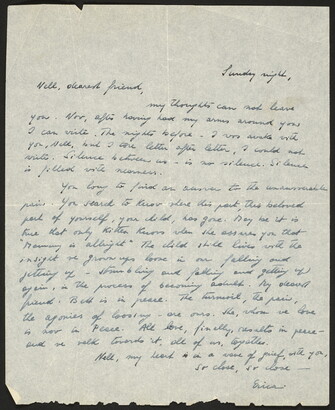 Sunday night,
Nell, dearest friend,
my thoughts can not leave
you. Now, after having had my arms around you
I can write. The nights before – I was awake with
you, Nell, but I tore letter after letter, I could not
write. Silence between us – is no silence. Silence
is filled with nearness.
You long to find an answer to the unanswerable
pain. You search to know where this part, this beloved
part of yourself, your child, has gone. May be it is
true that only Kitten knows when she assures you that
"Mammy is allright". The child still lives with the
insight we grown ups loose in our falling and
getting up – stumbling and falling and getting up
again, in the process of becoming adults. My dearest
friend. Beth is in peace. The turmoil, the pain,
the agonies of loosing – are ours. She, whom we love
is now in Peace. All love, finally, results in peace –
and we walk towards it, all of us, together.
Nell, my heart is in a vase of grief, with you,
so close, so close –
Erica